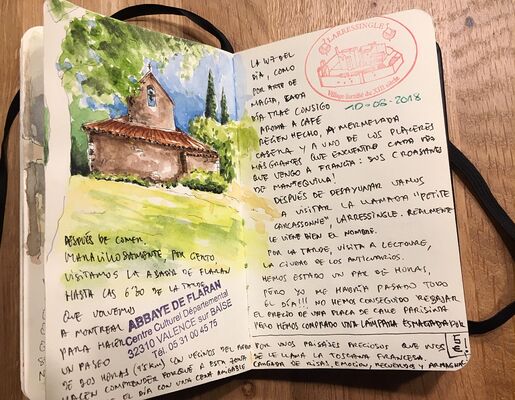 DESPUÉS DE COMER,
MARAVILLOSAMENTE, POR CIERTO,
VISITAMOS LA ABADÍA DE FLARAN
HASTA LAS 6'30 DE LA TARDE
QUE VOLVEMOS
A MONTREAL
PARA HACER
UN PASEO
ABBAYE DE FLARAN
Centre Culturel Départemental
32310 VALENCE sur BAÏSE
Tél. 05 31 00 45 75
LARRESSINGLE
Village fortifié du XIIIe siècle
10-06-2018
LA LUZ DEL
DÍA, COMO
POR ARTE DE
MAGIA, CADA
DÍA TRAE CONSIGO
AROMA A CAFÉ
RECIÉN HECHO, A MERMELADA
CASERA Y A UNO DE LOS PLACERES
MÁS GRANDES QUE ENCUENTRO CADA VEZ
QUE VENGO A FRANCIA: SUS CROASANES
DE MANTEQUILLA!
DESPUÉS DE DESAYUNAR VAMOS
A VISITAR LA LLAMADA "PETITE
CARCASSONNE", LARRESSINGLE. REALMENTE
LE VIENE BIEN EL NOMBRE.
POR LA TARDE, VISITA A LECTOURE,
LA CIUDAD DE LOS ANTICUARIOS.
HEMOS ESTADO UN PAR DE HORAS,
PERO YO ME HABRÍA PASADO TODO
EL DÍA!!! NO HEMOS CONSEGUIDO REBAJAR
EL PRECIO DE UNA PLACA DE CALLE PARISINA
PERO HEMOS COMPRADO UNA LÁMPARA ESMALTADA POR
DE DOS HORAS (7'5 KM) CON VECINOS DEL PUEBLO POR UNOS PAISAJES PRECIOSOS QUE NOS
HACEN COMPRENDER PORQUE A ESTA ZONA SE LE LLAMA LA TOSCANA FRANCESA.
EL DÍA CON UNA CENA AMIGABLE CARGADA DE RISAS, EMOCIÓN, RECUERDOS Y ARMAGNAC